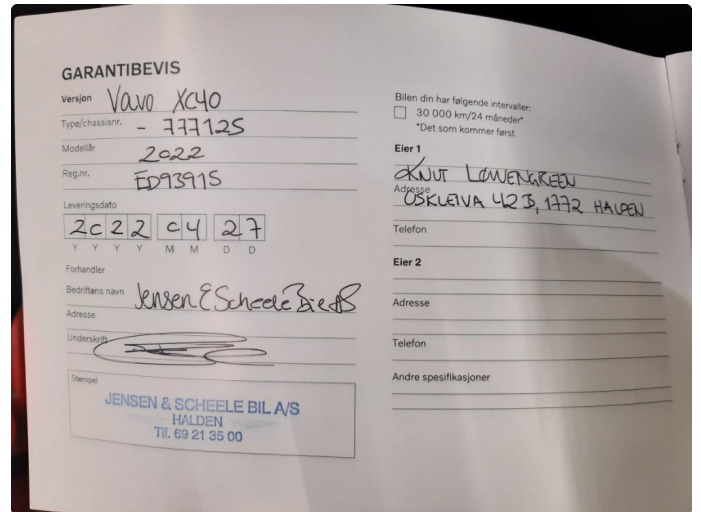 GARANTIBEVIS
Versjon Volvo XC40
Type/chassisnr. - 777125
Modellår 2022
Reg.nr. ED93915
Leveringsdato
2022 04 27
Y Y Y Y M M D D
Forhandler
Bedriftens navn Jensen & Scheele Bil AS
Adresse
Underskrift
Stempel
JENSEN & SCHEELE BIL A/S
HALDEN
Tlf. 69 21 35 00
Bilen din har følgende intervaller:
30 000 km/24 måneder*
*Det som kommer først
Eier 1
KNUT LØWENGREEN
Adresse
OSKLEIVA 42B, 1772 HALDEN
Telefon
Eier 2
Adresse
Telefon
Andre spesifikasjoner